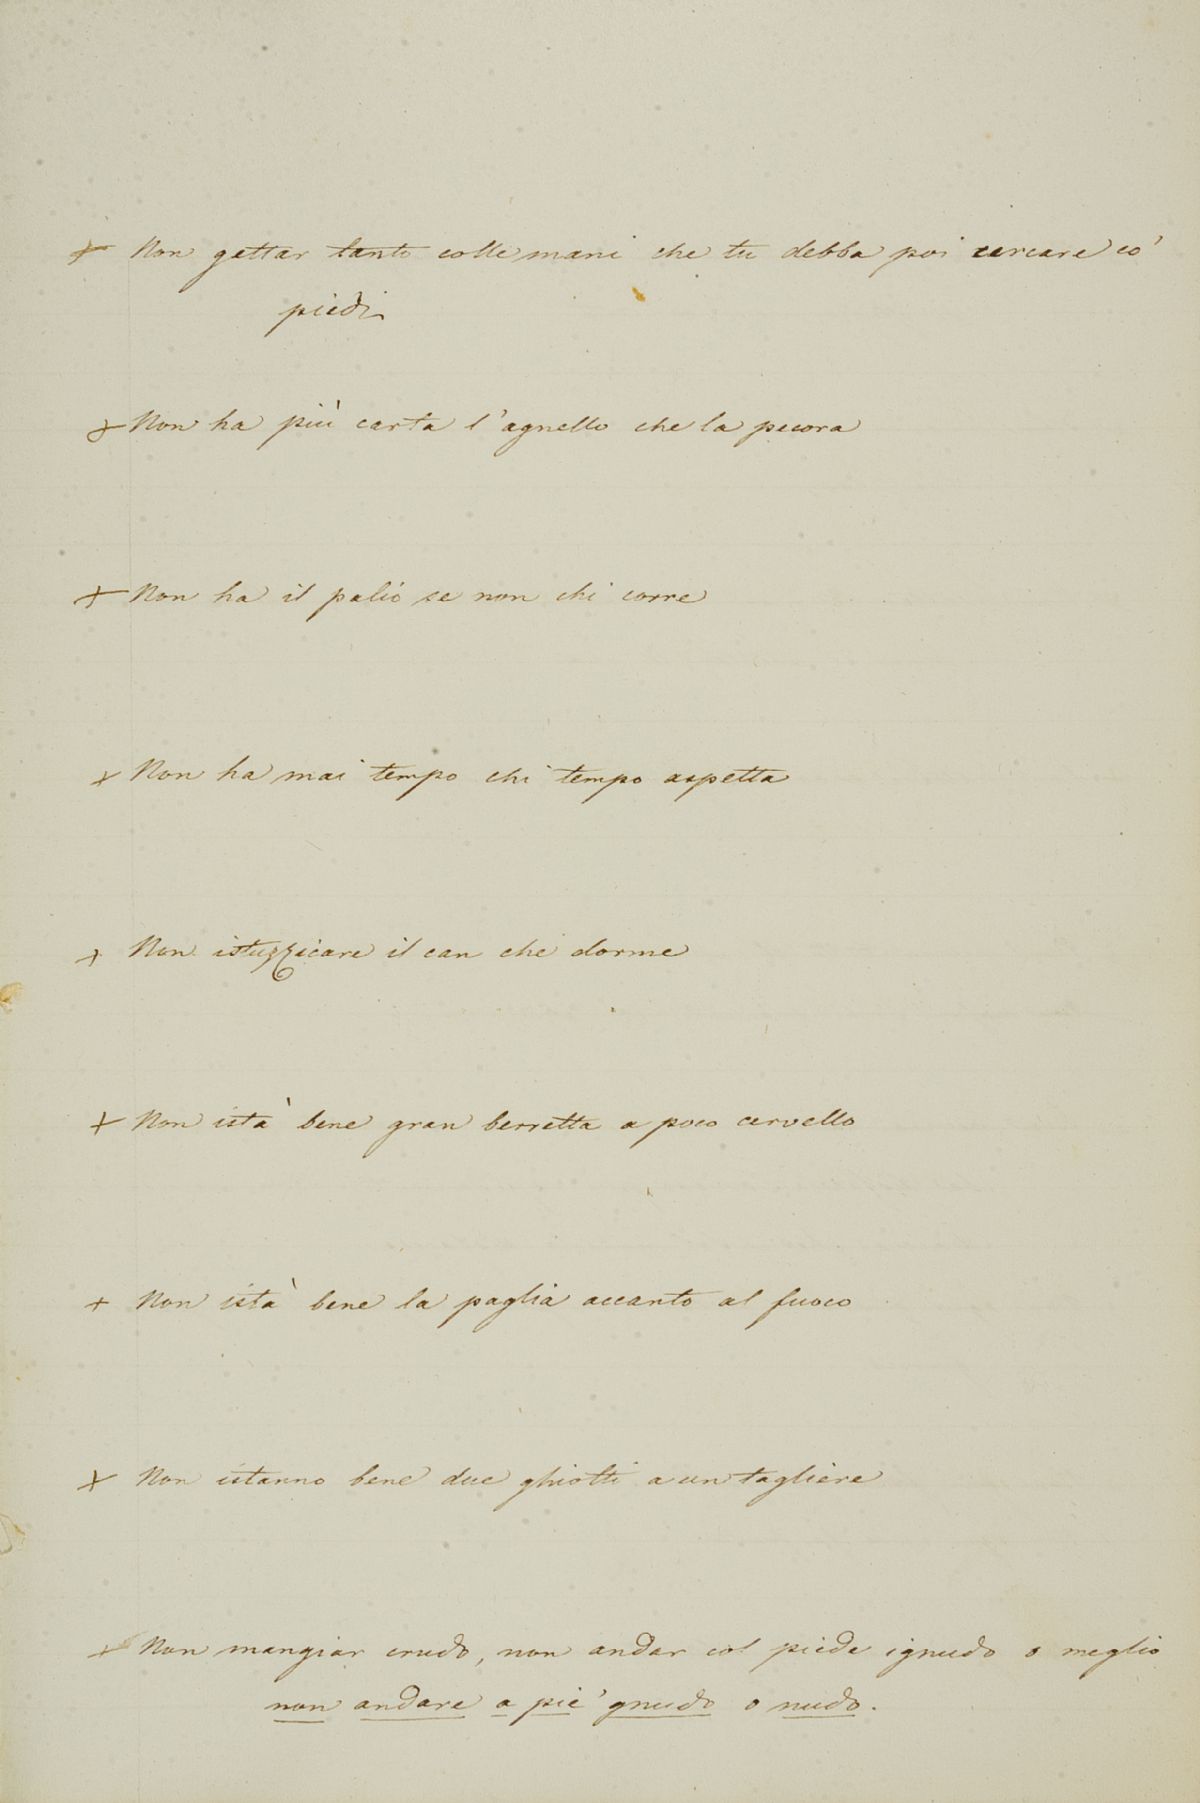 + Non gettar tanto colle mani che tu debba poi cercare co'
piedi
+ Non ha più carta l'agnello che la pecora
+ Non ha il palio se non chi corre
+ Non ha mai tempo chi tempo aspetta
+ Non istuzzicare il can che dorme
+ Non istà bene gran berretta a poco cervello
+ Non istà bene la paglia accanto al fuoco
+ Non istanno bene due ghiotti a un tagliere
+ Non mangiar crudo, non andar col piede ignudo o meglio
non andare a piè gnudo o nudo.